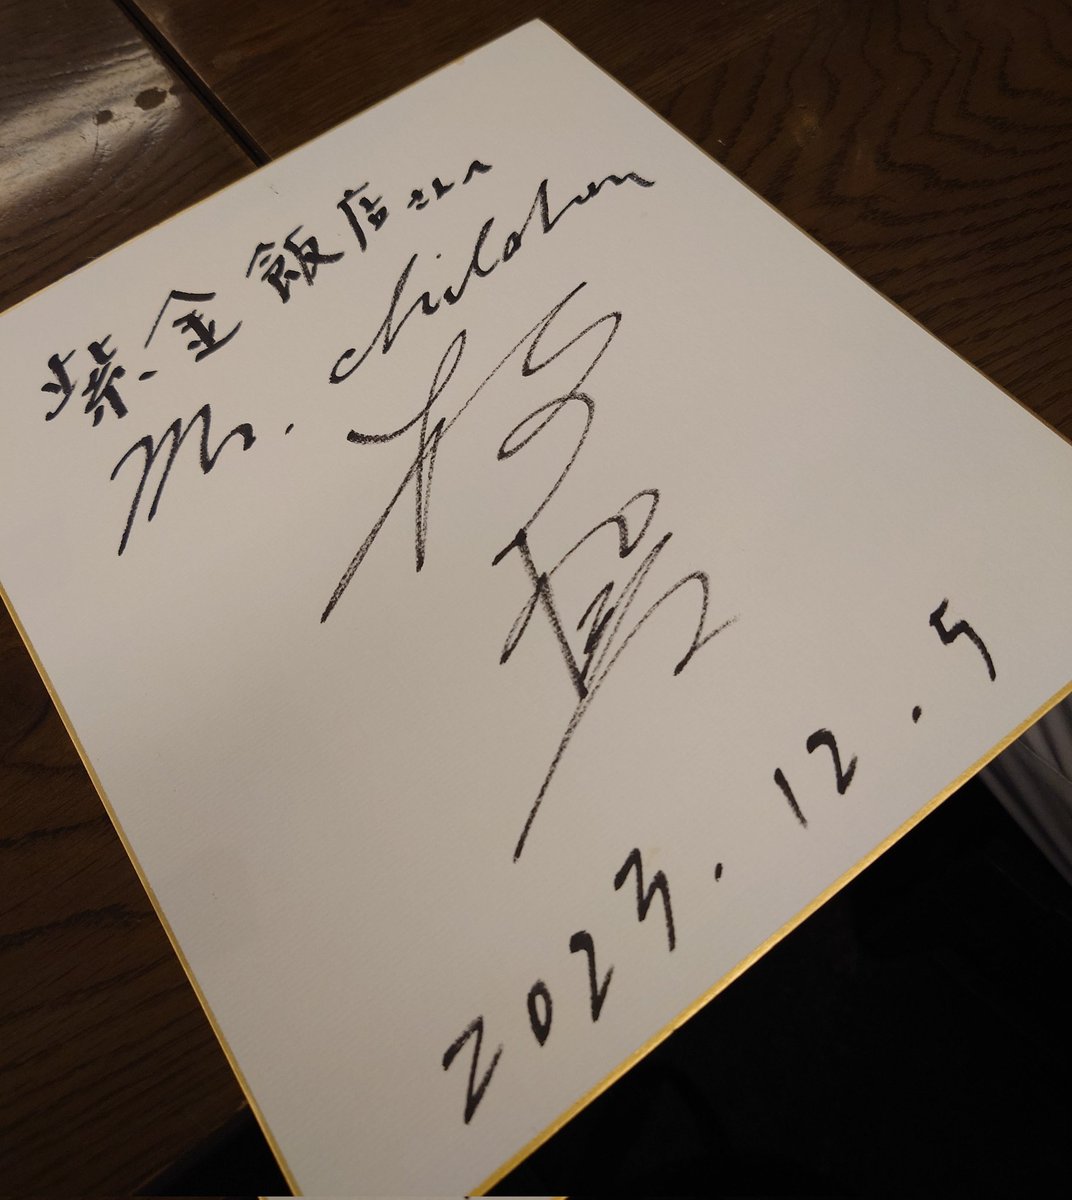 紫金飯店さんへ
Mr. children
桜井
2023.12.5